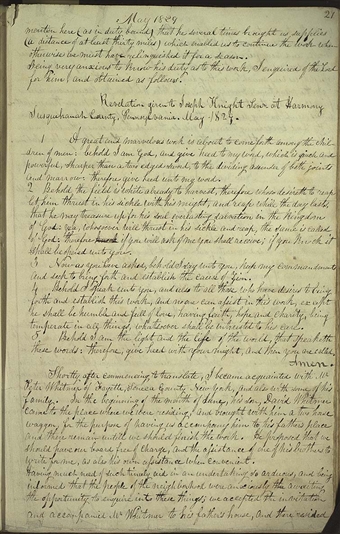 May 1829
21
mention here (as in duty bound) that he several times brought us supplies
(a distance of at least thirty miles) which enabled us to continue the work when
otherwise we must have relinquished it for a season.
Being very anxious to know his duty as to this work, I enquired of the Lord
for him, and obtained as follows:
Revelation given to Joseph Knight Senr at Harmony
Susquehanah County, Pennsylvania. May 1829.
1 A great and marvelous work is about to come forth among the chil-
dren of men: behold I am God, and give heed to my word, which is quick and
powerful, sharper than a two edged sword, to the dividing asunder of both joints
and marrow: therefore give heed unto my word.
2 Behold the field is white already to harvest, therefore whoso desireth to reap
let him thrust in his sickle with his might, and reap while the day lasts,
that he may treasure up for his soul everlasting salvation in the Kingdom
of God: Yea, whosoever will thrust in his sickle and reap, the same is called
of God: therefore if you will ask of me you shall receive; if you knock it
shall be opened unto you.
3 Now as you have asked, behold I say unto you, keep my commandments
and seek to bring forth and establish the cause of Zion.
4 Behold I speak unto you, and also to all those who have desires to bring
forth and establish this work, and no one can assist in this work, except
he shall be humble and full of love, having faith, hope and charity, being
temperate in all things, whatsoever shall be intrusted to his care.
5 Behold I am the light and the life of the world, that speaketh
these words: therefore, give heed with your might, and then you are called.
Amen.
Shortly after commencing to translate, I became acquainted with Mr
Peter Whitmer of Fayette, Seneca County, New York, and also with some of his
family. In the beginning of the month of June, his son, David Whitmer
came to the place where we were residing, and brought with him a two horse
wagon, for the purpose of having us accompany him to his fathers place
and there remain until we should finish the work. He proposed that we
should have our board free of charge, and the assistance of one of his brothers to
write for me, as also his own assistance when convenient.
Having much need of such timely aid in an undertaking so arduous, and being
informed that the people of the neighborhood were anxiously awaiting
the opportunity to enquire into these things; we accepted the invitation
and accompanied Mr Whitmer to his fathers house, and there resided